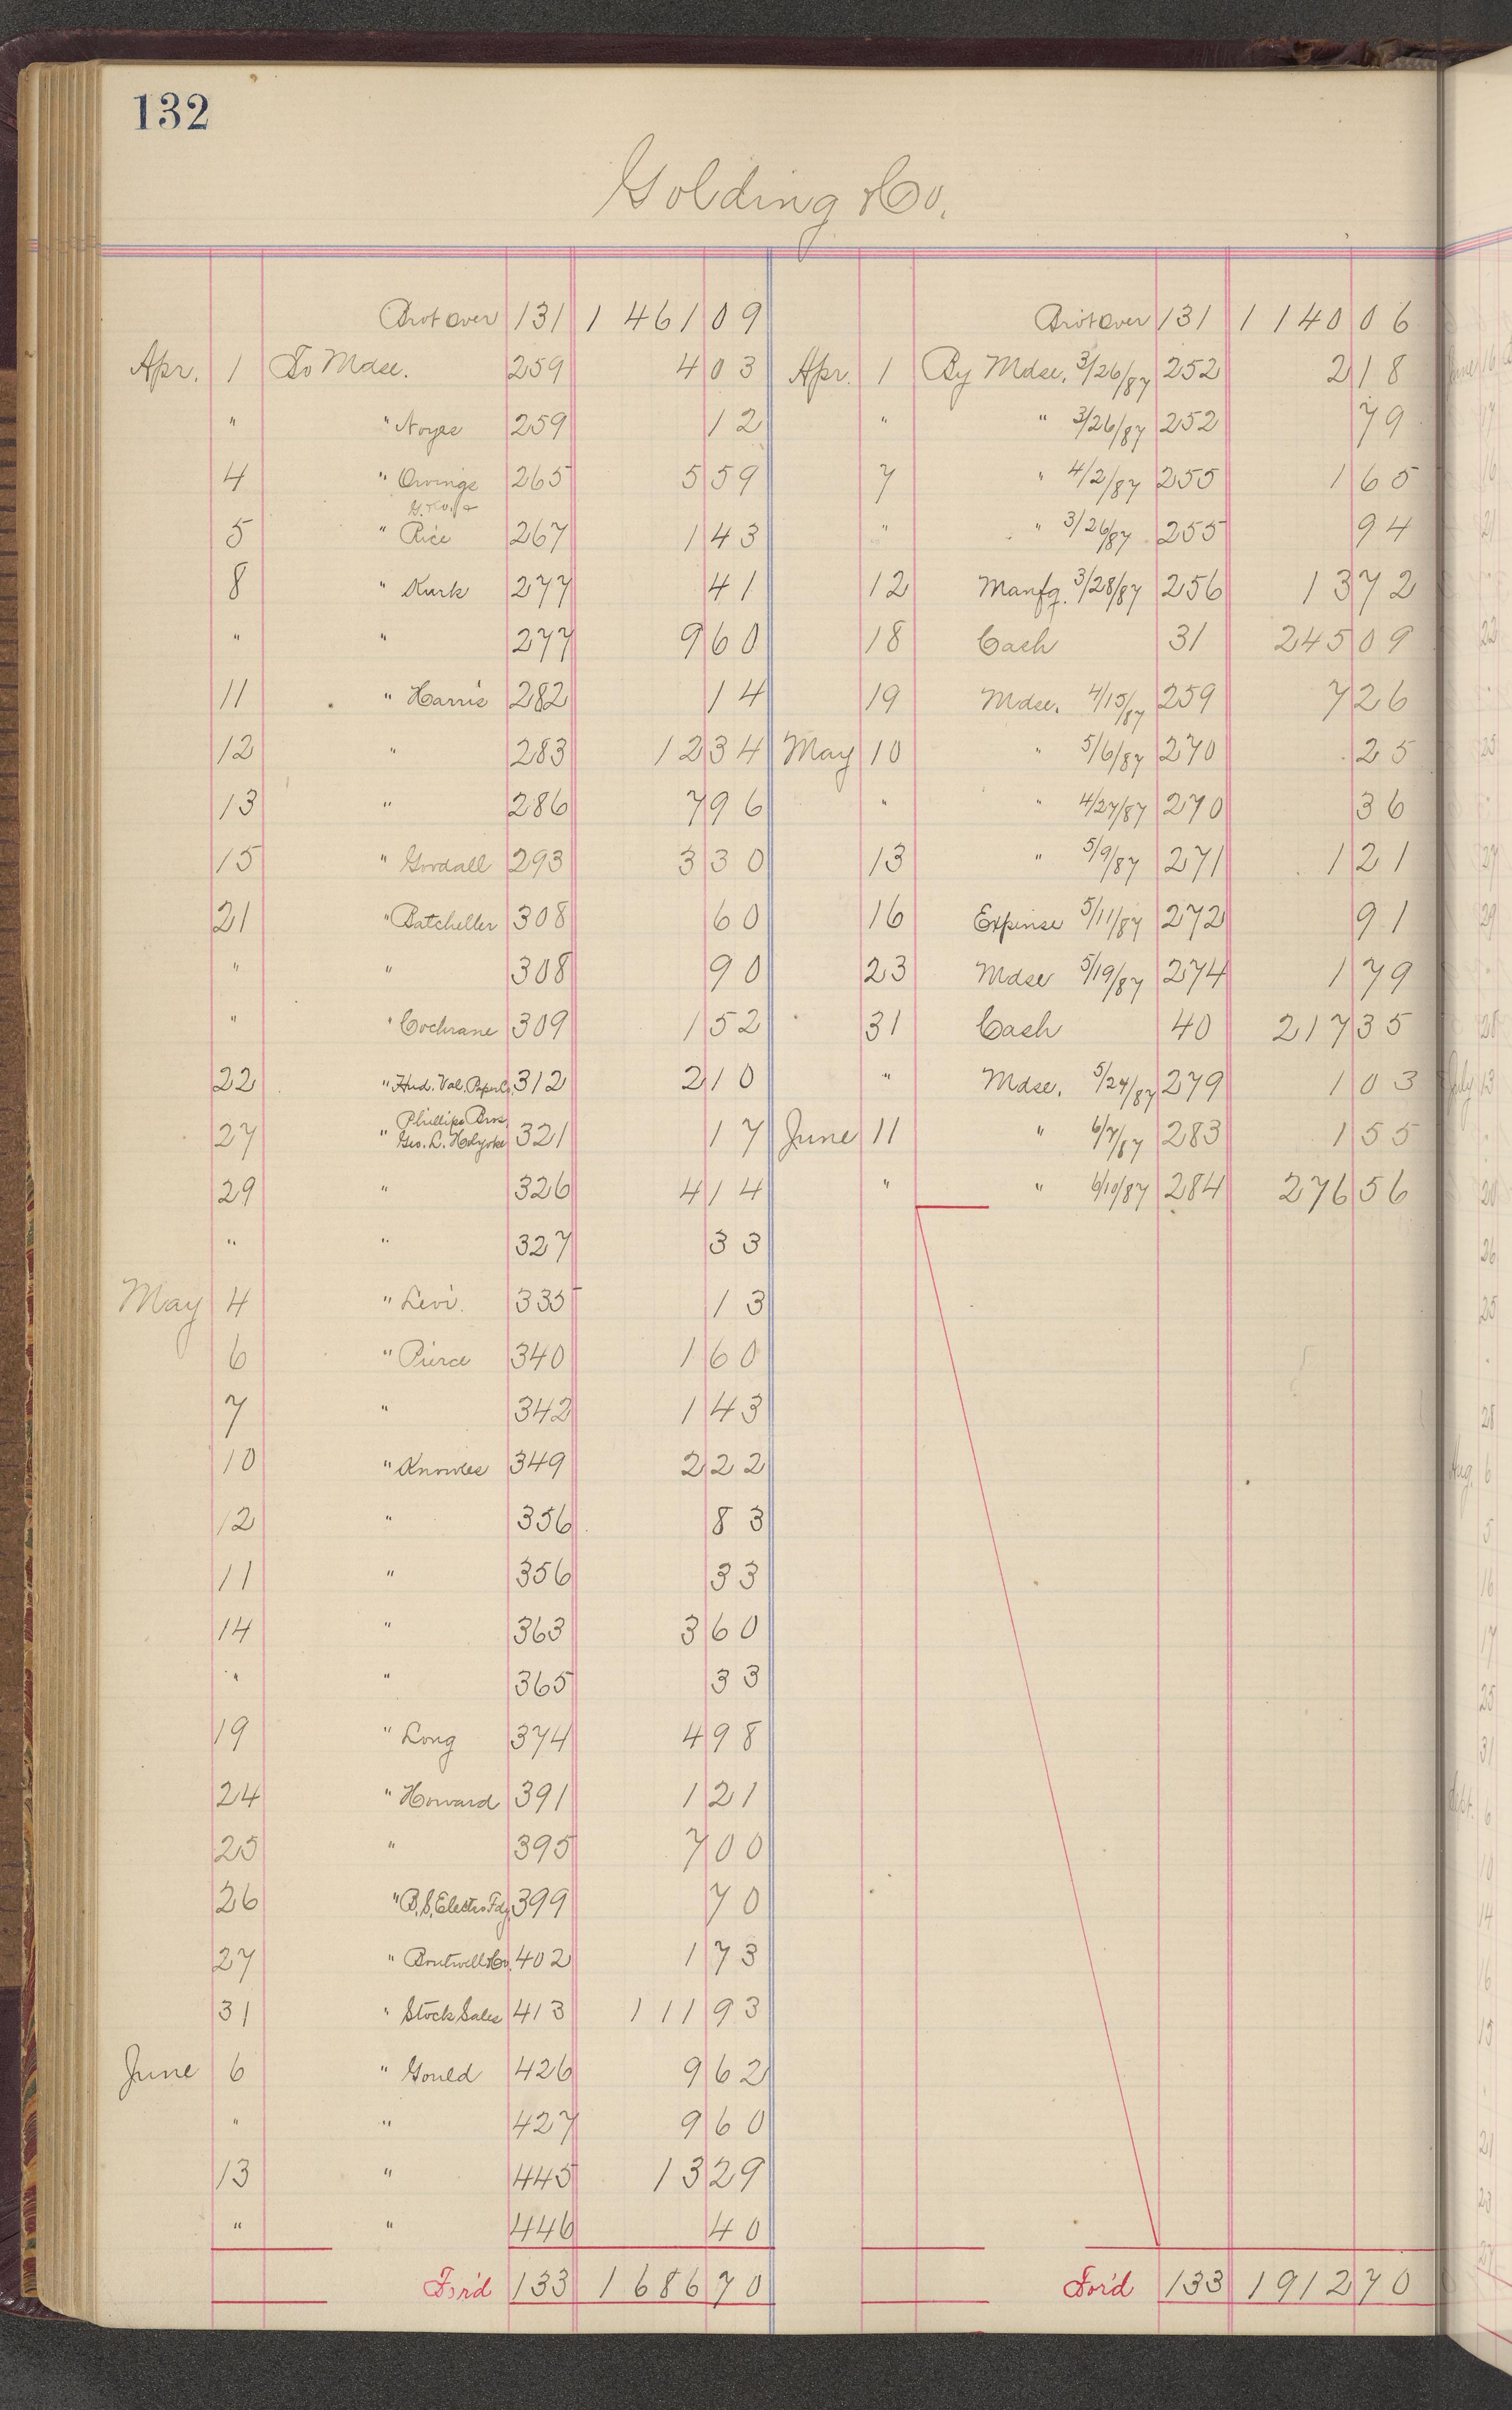 132
Golding & Co.
Brot over 131 1 461 09 Brot over 131 1 140 06
Apr. 1 To Mdse. 259 4 03 Apr. 1 By Mdse. 3/26/87 252 2 18
" " Noyes 259 12 " " 3/26/87 252 79
4 " Owings 265 5 59 7 " 4/2/87 255 1 65
5 " Rice 267 1 43 " " 3/26/87 255 94
8 " Kurk 277 41 12 Manfg. 3/28/87 256 13 72
" " 277 9 60 18 Cash 31 245 09
11 " Harris 282 14 19 Mdse. 4/15/87 259 7 26
12 " 283 12 34 May 10 " 5/6/87 270 25
13 " 286 7 96 " " 4/27/87 270 36
15 " Goodall 293 3 30 13 " 5/9/87 271 1 21
21 " Batcheller 308 60 16 Expense 5/11/87 272 91
" " 308 90 23 Mdse 5/19/87 274 1 79
" " Cochrane 309 1 52 31 Cash 40 217 35
22 " Hud. Val. Paper Co. 312 2 10 " Mdse. 5/24/87 279 1 03
Phillips Bros.
27 " Geo. L. Holyoke 321 17 June 11 " 6/7/87 283 1 55
29 " 326 4 14 " " 6/10/87 284 276 56
" " 327 33
May 4 " Levi. 335 13
6 " Pierce 340 1 60
7 " 342 1 43
10 " Knowles 349 2 22
12 " 356 83
11 " 356 33
14 " 363 3 60
" " 365 33
19 " Long 374 4 98
24 " Howard 391 1 21
25 " 395 7 00
26 " B.S. Electro Fdy. 399 70
27 " Boutwell & Co. 402 1 73
31 " Stock Sales 413 111 93
June 6 " Gould 426 9 62
" " 427 9 60
13 " 445 13 29
" " 446 40
For'd 133 1 686 70 For'd 133 1 912 70